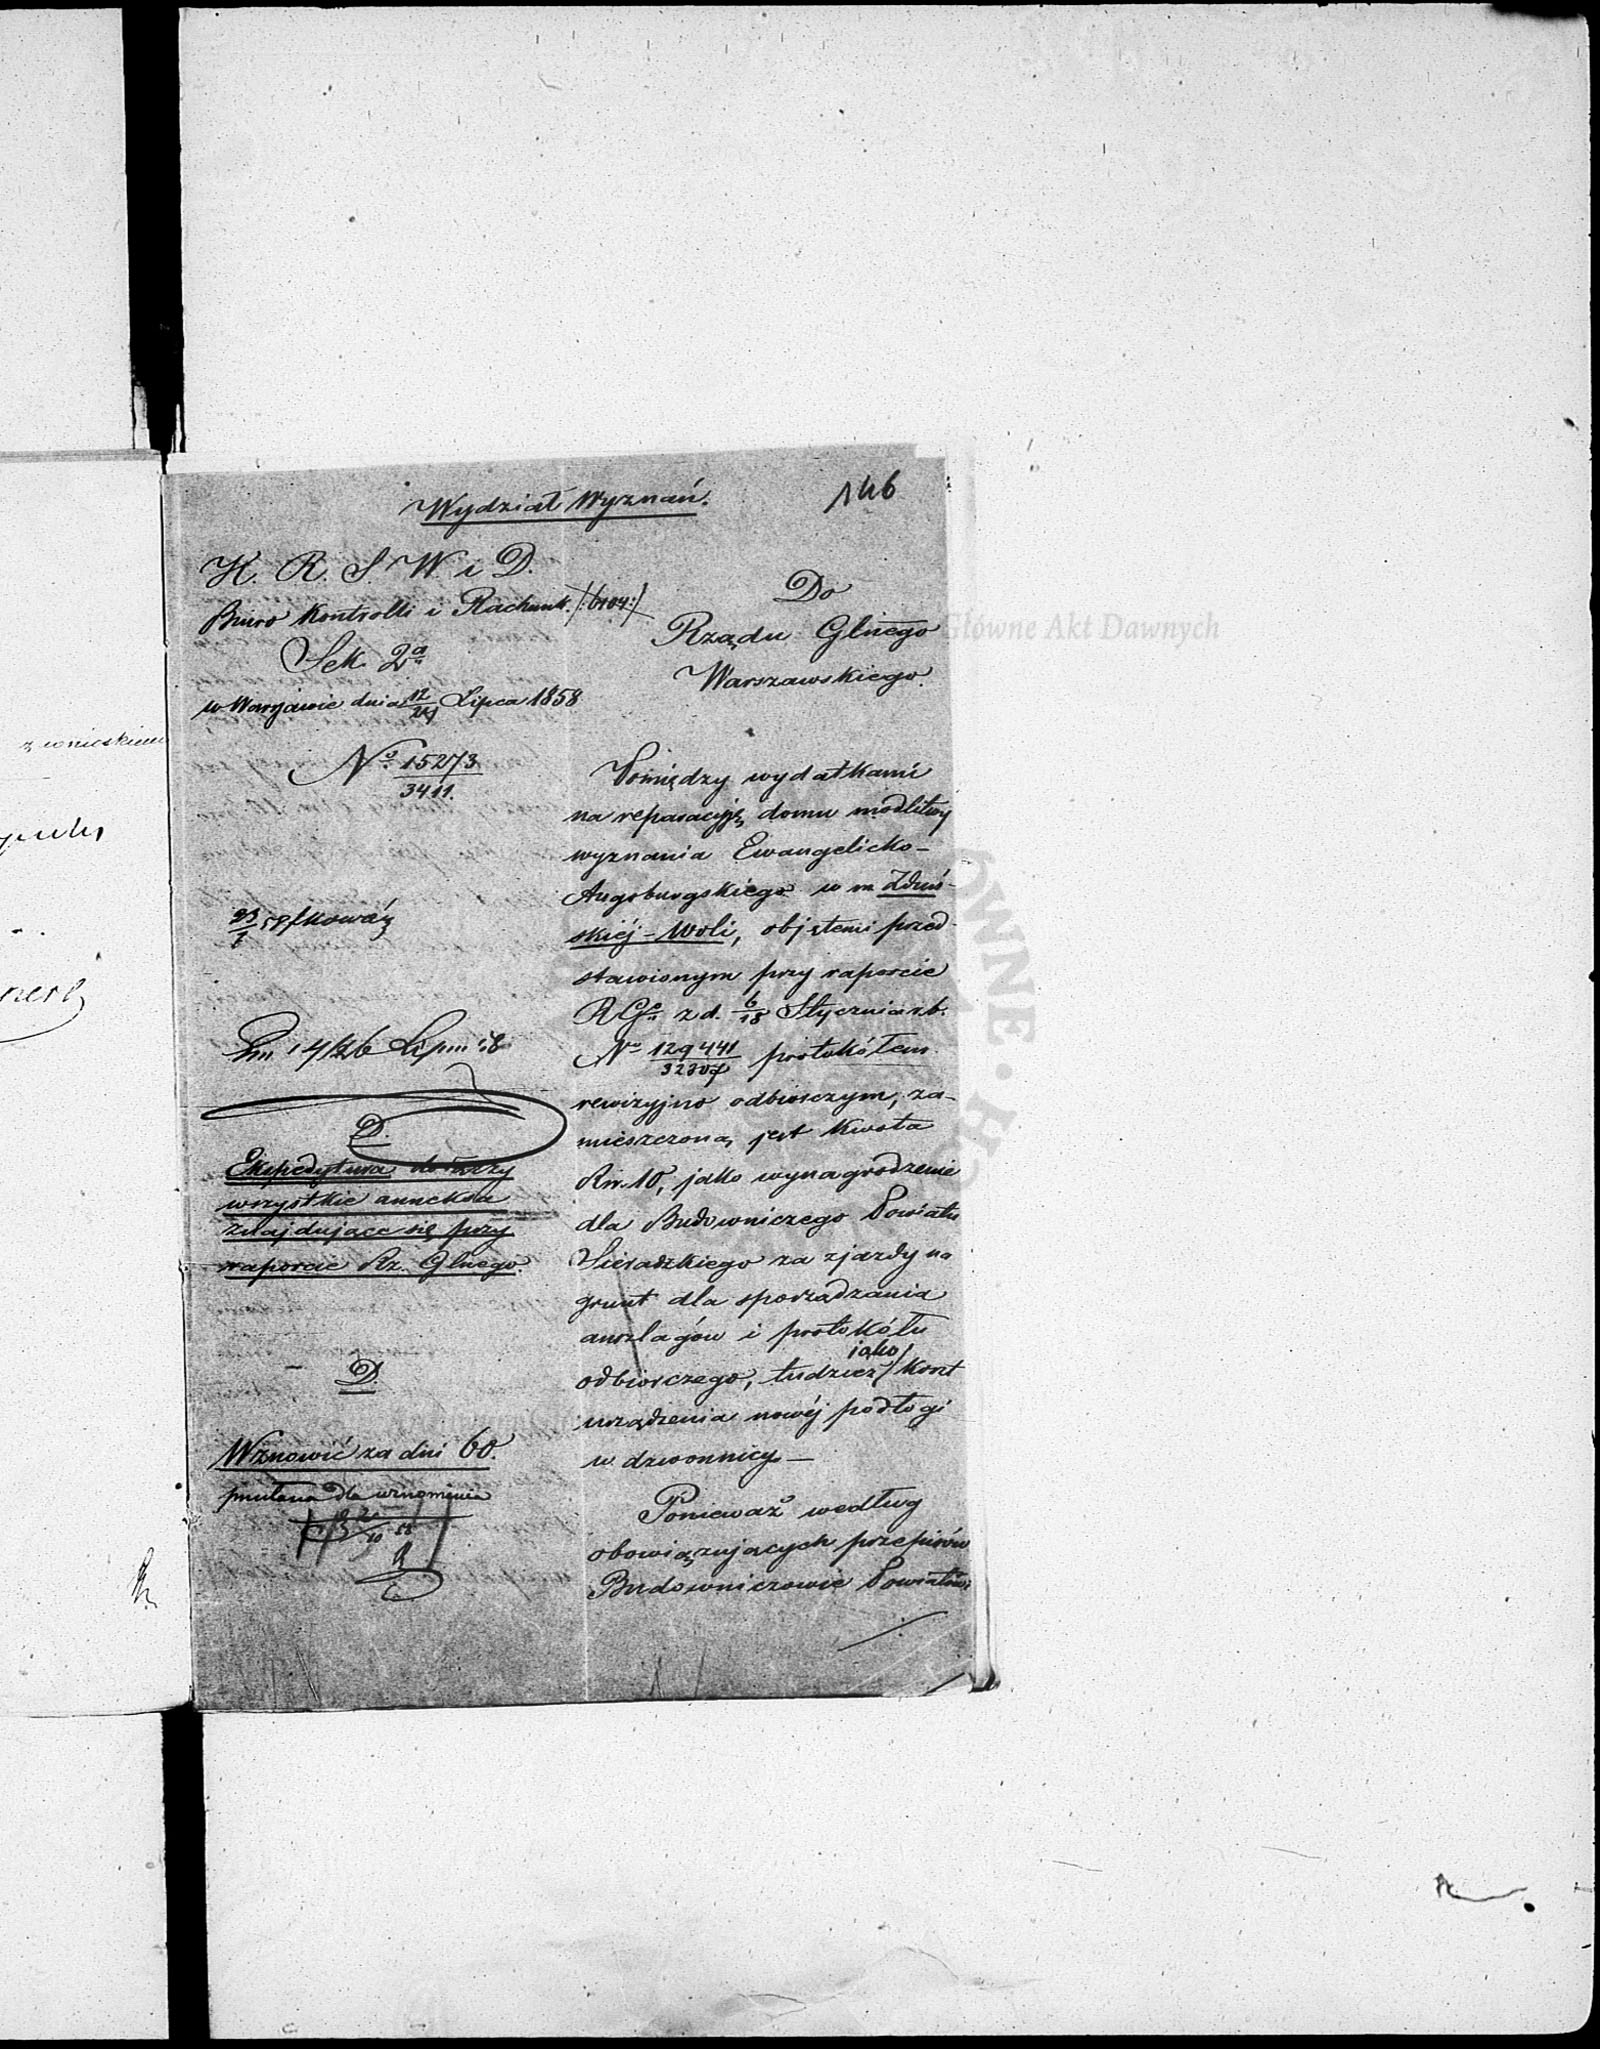 146
Wydział Wyznań.
K. R. S. W. i D.
Biuro Kontrolli i Rachunk. /:6104:/
Sek. 2a
w Warszawie dnia 12/24 Lipca 1858
No 15273/3411.
14/26
D.
Ekspedytura dołączy
wszystkie anneksa
znajdujące się przy
raporcie Rz. Glnego.
D.
Wznowić za dni 60.
dla wznowienia
Do
Rządu Glnego
Warszawskiego.
Pomiędzy wydatkami
na reparacyję domu modlitwy
wyznania Ewangelicko-
Augsburgskiego w m. Zduń-
skiéj-Woli, objętemi przed-
stawionym przy raporcie
R Go z d. 6/18 Stycznia r.b.
No 129441/32307 protokółem
rewizyjno odbiorczym, za-
mieszczoną jest kwota
Rsr. 10, jako wynagrodzenie
dla Budowniczego Powiatu
Sieradzkiego za zjazdy na
grunt dla sporządzania
anszlagów i protokółu
jako
odbiorczego, tudzież koszt
urządzenia nowéj podłogi
w dzwonnicy.—
Ponieważ według
obowiązujących przepisów
Budowniczowie Powiatowi
./.
z wnioskiem
Główne Akt Dawnych